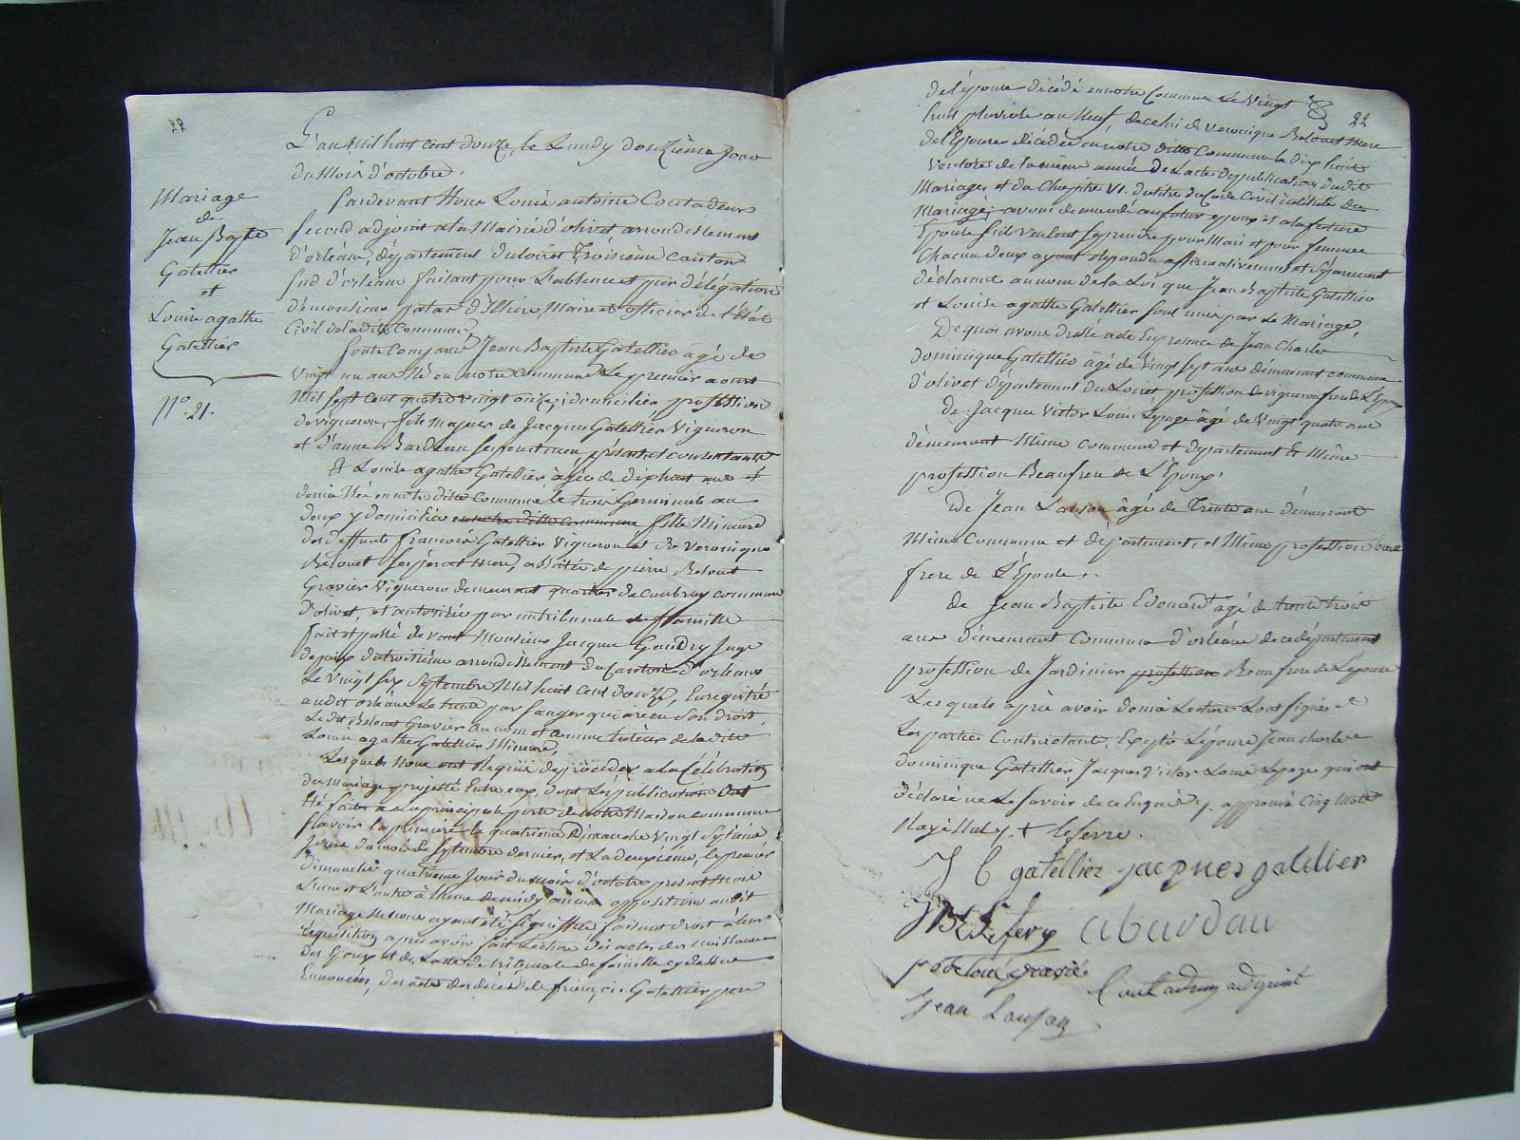 Mariage
de
Jean Bapte
Gatellier
et
Louise agathe
Gatellier
N° 21.
L'an Mil huit cent douze, le Lundy douzième Jour
du Mois d'octobre.
Pardevant Nous Louis antoine Coutadeur
second adjoint a la Mairie d'olivet arrondissement
d'orléans, département du loiret Troisième canton
sud d'orléans faisant pour l'absence et par délégation
de monsieur Maire et officier de l'état
Civil de ladite Commune
sont Comparus Jean Baptiste Gatellier âgé de
vingt un ans Né en notre Commune Le premier aoust
Mil sept cent quatre vingt onze, y domicilié profession
de vigneron, fils majeur de Jacques Gatellier Vigneron
et d'anne Bardeau ses pere et mere présents et consentants
Et Louise agathe Gatellier âgée de dix huit ans et
demie Née en notre dite Commune le trois Germinal an
deux y domiciliée en notre ditte Commune fille Mineure
des deffunts françois Gatellier Vigneron et de Veronique
Beloüet ses père et mere, assistée de pierre Beloüet
Gravier Vigneron demeurant quartier de commune
d'olivet, et autorisée par un tribunal de famille
fait et passé devant Monsieur Jacque Gaudry Juge
de paix du troisième arrondissement du Canton d'orleans
Le Vingt six Septembre Mil huit cent douze, Enregistré
audit orléans Le trente par qui a reçu son droit.
Le dit Beloüet Gravier au nom et comme tuteur de la dite
Louise agathe Gatellier Mineure,
Lesquels Nous ont Requis de procéder a la Célébration
du Mariage projetté Entre eux, dont Les publications Ont
été faites a la principale porte de notre Maison commune
sçavoir la premiere le quatrieme Dimanche Vingt Septième
jour du mois de Septembre dernier, et La deuxième, le premier
Dimanche quatrième Jour du mois d'octobre present Mois
L'une et L'autre à l'heure de midy aucune opposition audit
Mariage Ne nous ayant été Signiffiée faisant droit à leur
requisition après avoir fait Lecture des actes de naissance
des Epoux et de L'acte de tribunal de famille cy dessus
Ennoncées, des actes des deces de françois Gatellier pere
22
de l'épouse décédé en notre Commune Le Vingt
huit pluviose an Neuf de celui de Veronique Beloüet Mere
de l'Epouse décédée en notre ditte Commune le dix huit
Ventose de la même année De L'acte de publication dudit
Mariage et du Chapitre VI. du titre du Code Civil intitulé du
Mariage, avons demandé au futur époux et a la future
Epouse s'ils veulent se prendre pour Mari et pour femme
Chacun deux ayant repondu affirmativement et Séparement
déclarons au nom de la Loi que Jean Baptiste Gatellier
et Louise agathe Gatellier sont unis par Le Mariage.
De quoi avons dressé acte En presence de Jean Charles
dominique Gatellier âgé de Vingt sept ans demeurant commune
d'olivet département du Loiret, profession de vigneron frere de L'Epoux
de Jacques Victor Louis Lepage âgé de Vingt quatre ans
demeurant Même commune et département Et Même
profession Beaufrere de L'Epoux.
De Jean Lauson âgé de Trente ans demeurant
Même Commune et departement, et Même profession beau
frere de L'Epouse.
De Jean Baptiste Edouard agé de trente trois
ans demeurant Commune d'orléans de ce département
profession de Jardinier profession Beaufrere de L'epouse
Lesquels après avoir donné Lecture L'ont signé et
Les parties Contractantes, Exepté L'épouse Jean charles
dominique Gatellier, Jacques Victor Louis Lepage qui ont
déclaré ne Le Savoir de ce Enquis. approuvé Cinq Mots
Rayés Nuls. + lesevre.
J b gatellier jacques gatellier
abardau
p beloüé gravié
Coutadeur adjoint
Jean Lauson